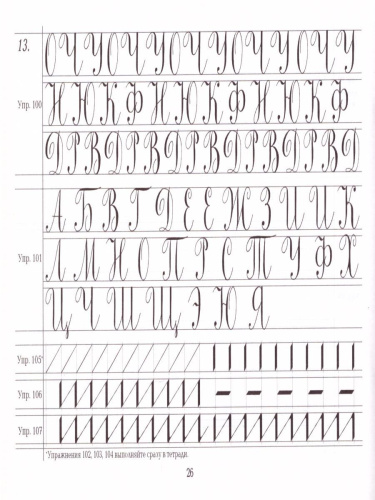 13. О Ч У О Ч У О Ч У О Ч У О Ч У
Упр. 100 Н Ю К Ф Н Ю К Ф Н Ю К Ф
Д Р В Д Р В Д Р В Д Р В Д Р В Д
А Б В Г Д Е Е Ж З И И К
Упр. 101 Л М Н О П Р С Т У Ф Х
Ц Ч Ш Щ Э Ю Я
Упр. 105*
Упр. 106
Упр. 107
*Упражнения 102, 103, 104 выполняйте сразу в тетради.
26